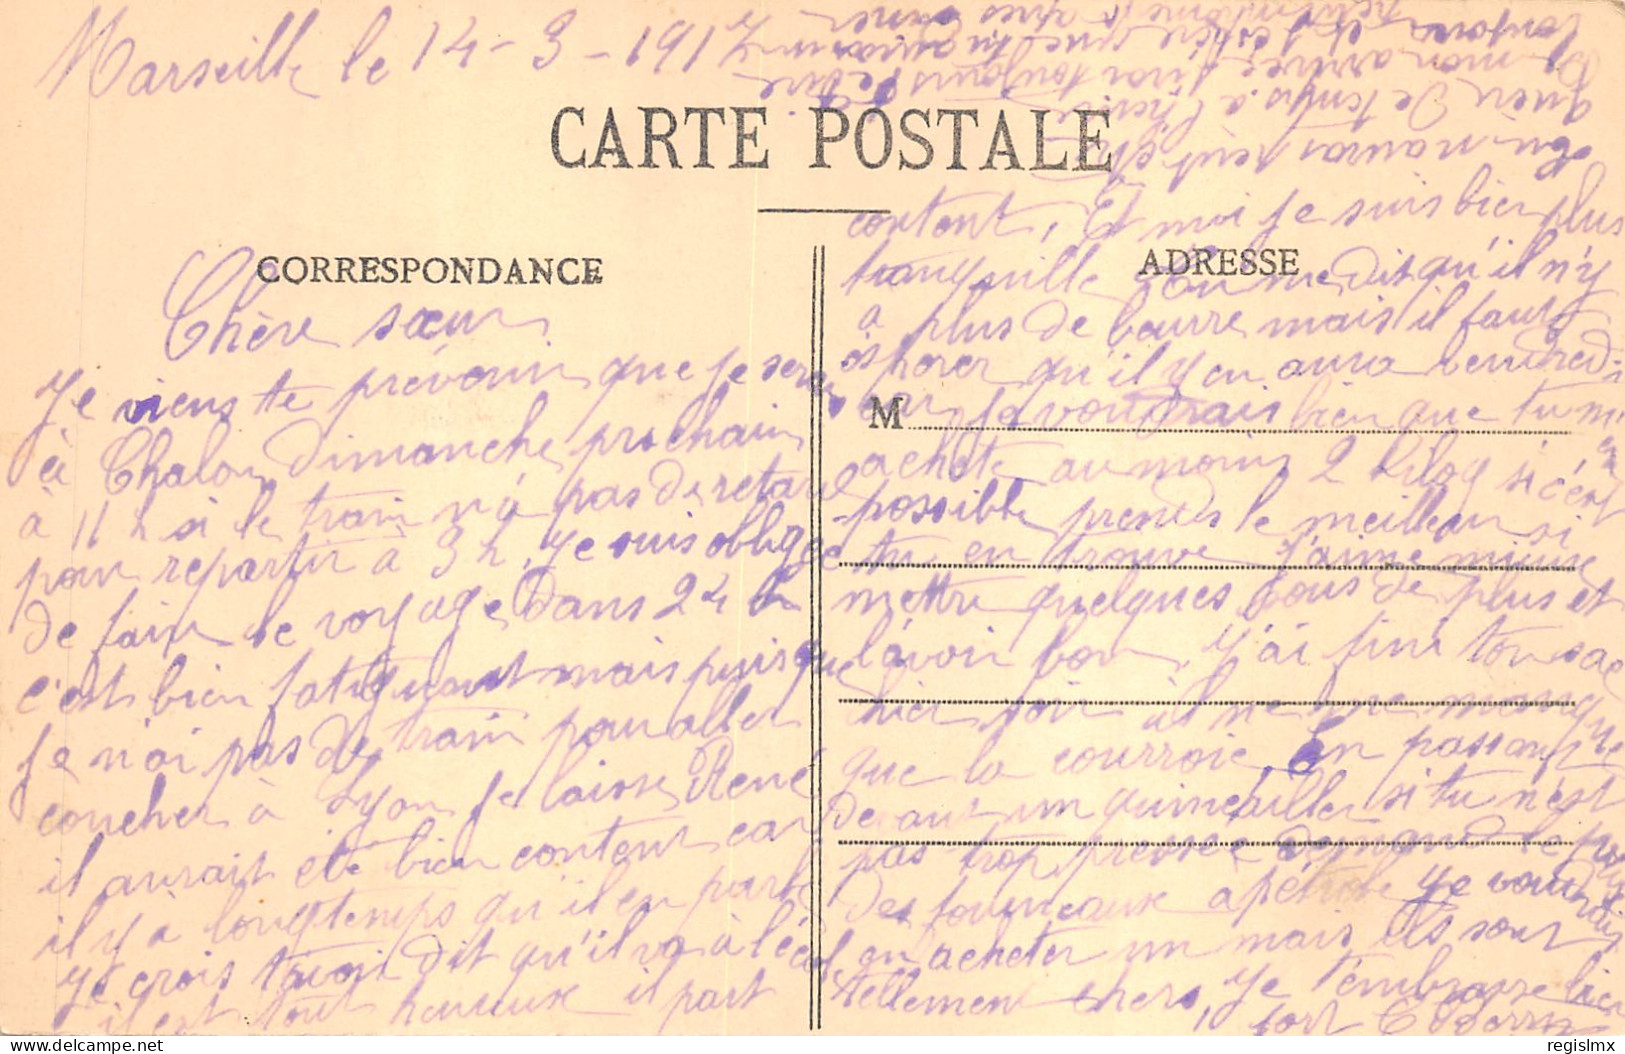 Marseille le 14-3-1917
CARTE POSTALE
CORRESPONDANCE
Chère sœur
Je viens te prévenir que je serai
à Chalon dimanche prochain
à 11 h si le train n'a pas de retard
pour repartir à 3 h, je suis obligée
de faire le voyage dans 24 h
c'est bien fatiguant mais puisque
je n'ai pas de train pour aller
coucher à Lyon je laisse René
il aurait été bien content car
il y a longtemps qu'il en parle
je crois t'avoir dit qu'il va à l'école
il est tout heureux il part
content, Et moi je suis bien plus
tranquille on me dit qu'il n'y
ADRESSE
a plus de beurre mais il faut
esperer qu'il y en aura vendredi
car je voudrais bien que tu m'en
M
achete au moins 2 kilog si c'est
possible prends le meilleur si
tu en trouve j'aime mieux
mettre quelques sous de plus et
l'avoir bon, j'ai fini ton sac
hier soir il ne me manque
que la courroie, en passant
devant un quincailler si tu n'est
pas trop pressée demande le prix
des fourneaux a pétrole je voudrais
en acheter un mais ils sont
tellement chers, je t'embrasse bien
fort
tu n'auras peut être
guère de temps à l'heure
de mon arrivée, j'irai toujours
toujours et j'espère que tu